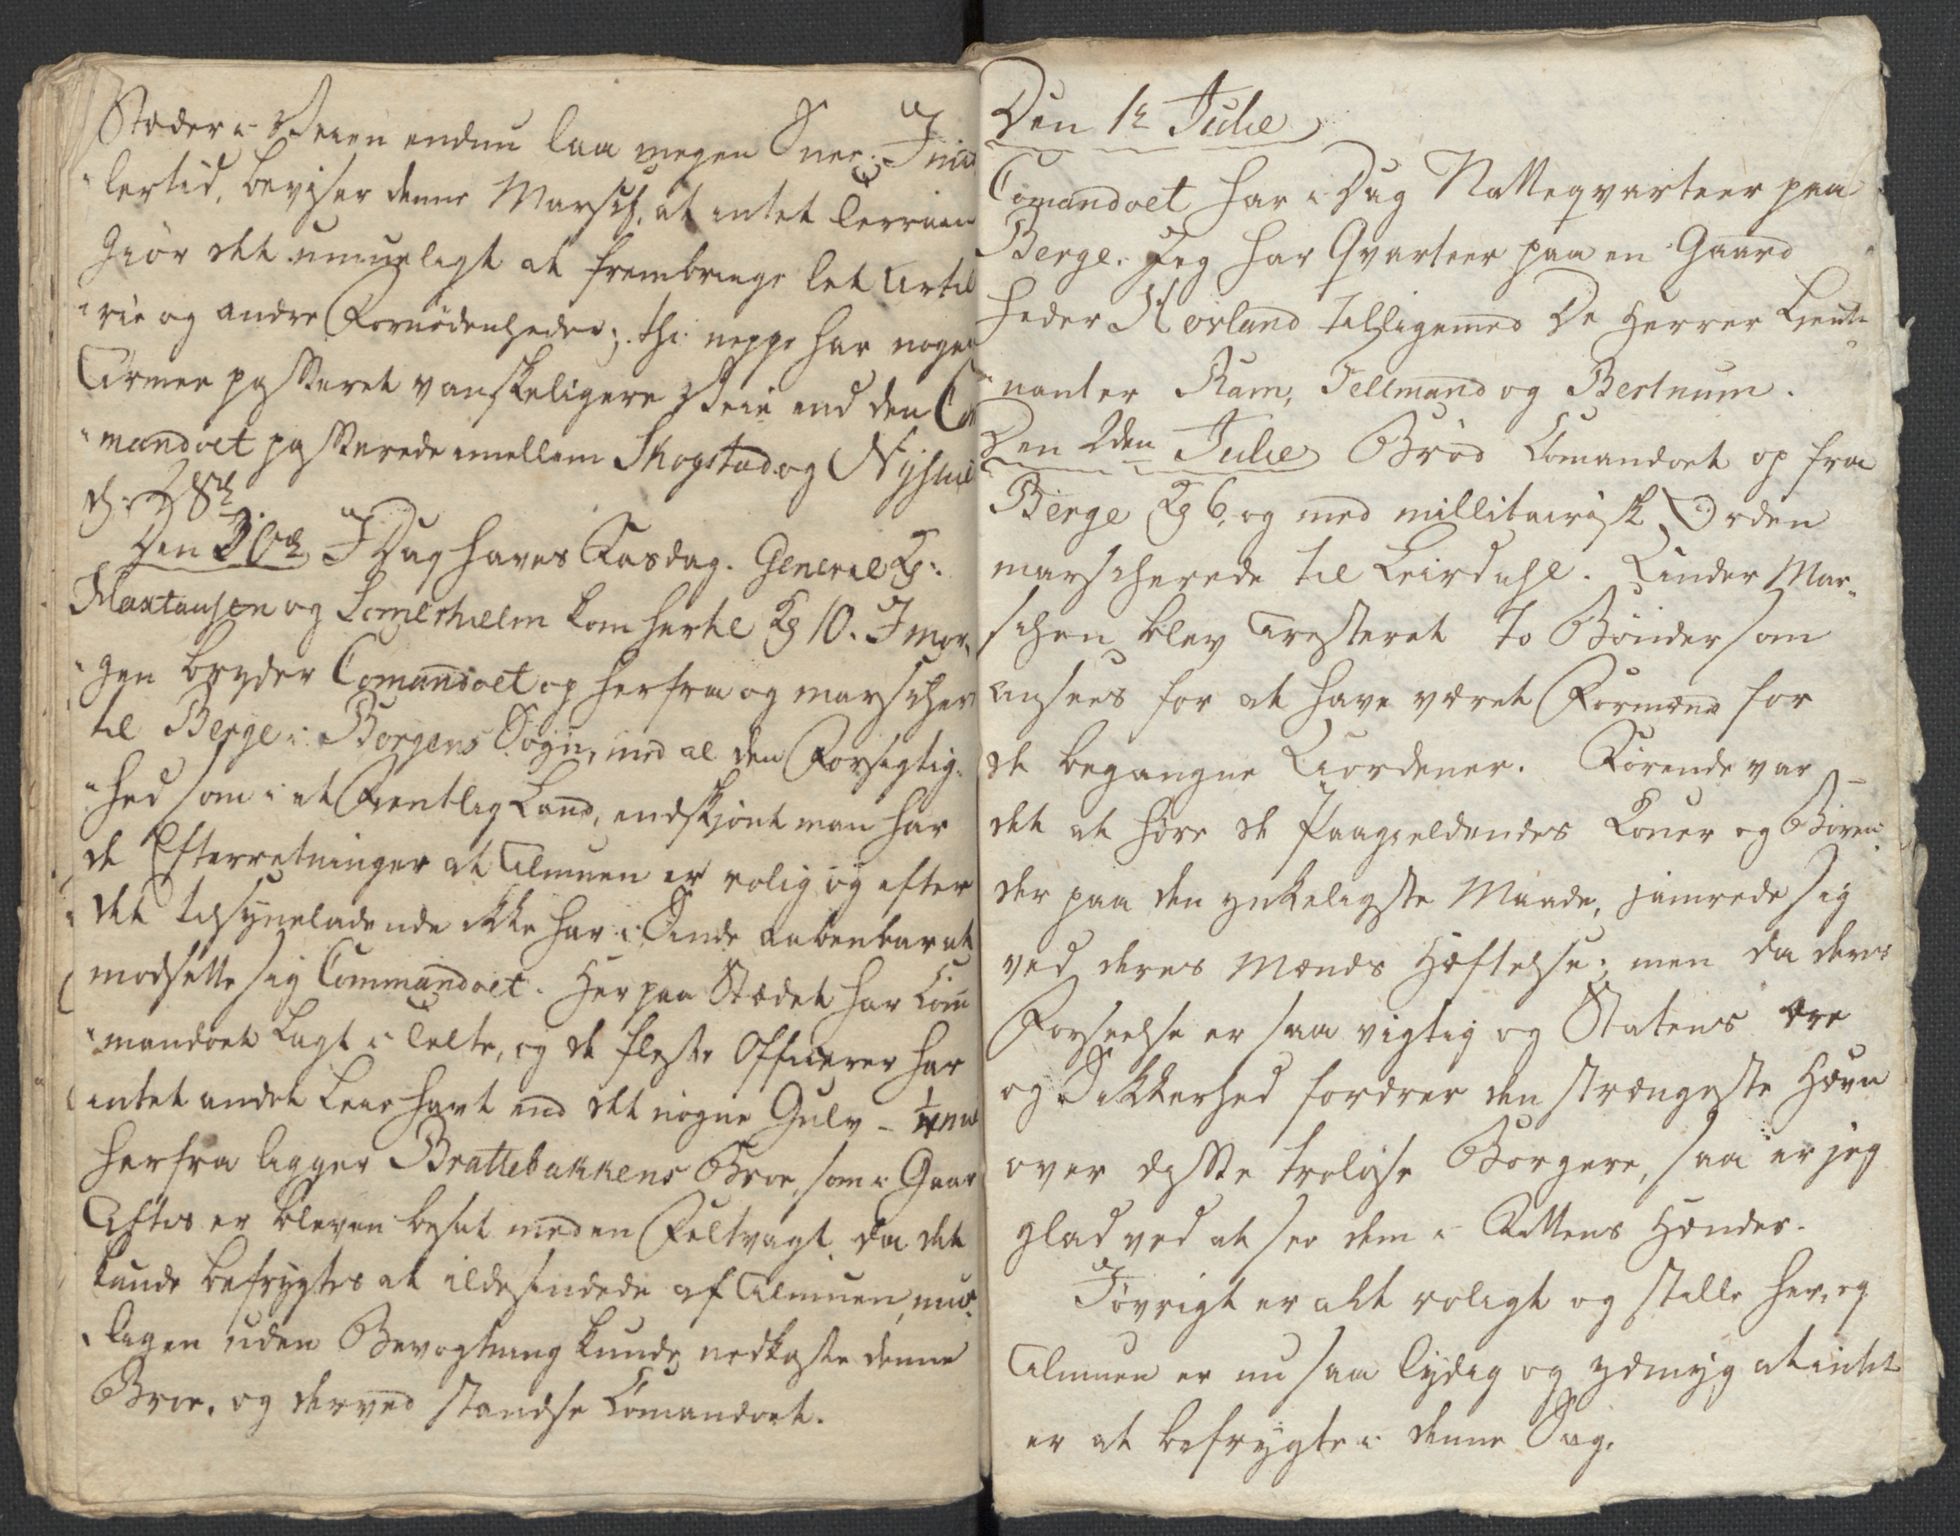 Stæder i Veien endnu laa megen Snee. Imid
lertid, beviser denne Marsch, at intet Terrain
Giör det umueligt at frembringe let Artil
rie og andre Fornödenheder; thi neppe har nogen
Armee passeret vanskeligere Veie end den Co
mandoet passerede imellem Skogstad og Nystue
d: 28de
Den 30te I Dag haves Rasdag. General Kg:
Maxtausen og Lomerhielm kom hertil Kg 10. I mor-
gen bryder Comandoet op herfra og marscher
til Berge i Borgens Sogn, med al den Forsigtig-
hed som i et Fientlig Land, endskjönt man har
de Efterretninger at Almuen er rolig og efter
det tilsyneladende ikke har i Sinde aabenbar at
modsette sig Commandoet. Her paa Stædet har Com
mandoet lagt i Telte, og de fleste Officerer har
intet andet Leie havt end det nögne Gulv - ¼ Mul
herfra ligger Brattebakkens Broe, som i Gaar
Aftes er bleven besat med en Feltvagt, da det
kunde befrygtes at ildesindede af Almuen, mue-
ligen uden Bevogtning kunde nedkaste denne
Broe, og derved standse Comandoet.
Den 1te Julie
Comandoet har i Dag Natteqvarteer paa
Berge. Jeg har Qvarteer paa en Gaard
heder Körland tilligemed De Herrer Lieute
nanter Ram, Tellmand og Bertnum.
Den 2den Julie Bröd Comandoet op fra
Berge Kg 6, og med millitairisk Orden
marscherede til Leirdahl. Under Mar-
schen blev Aresteret to Bönder som
ansees for at have været Formænd for
de begangne Uordener. Rörende var
det at höre de Paagieldendes Koner og Börn
der paa den ynkeligste Maade, jamrede sig
ved deres Mænds Hæftelse; men da deres
Forseelse er saa vigtig og Statens Ære
og Sikkerhed fordrer den strængeste Hævn
over disse trolöse Borgere, saa er jeg
glad ved at see dem i Rettens Hænder.
Iövrigt er alt roligt og stille her, og
Almuen er nu saa lydig og ydmyg at intet
er at befrygte i denne Sag.